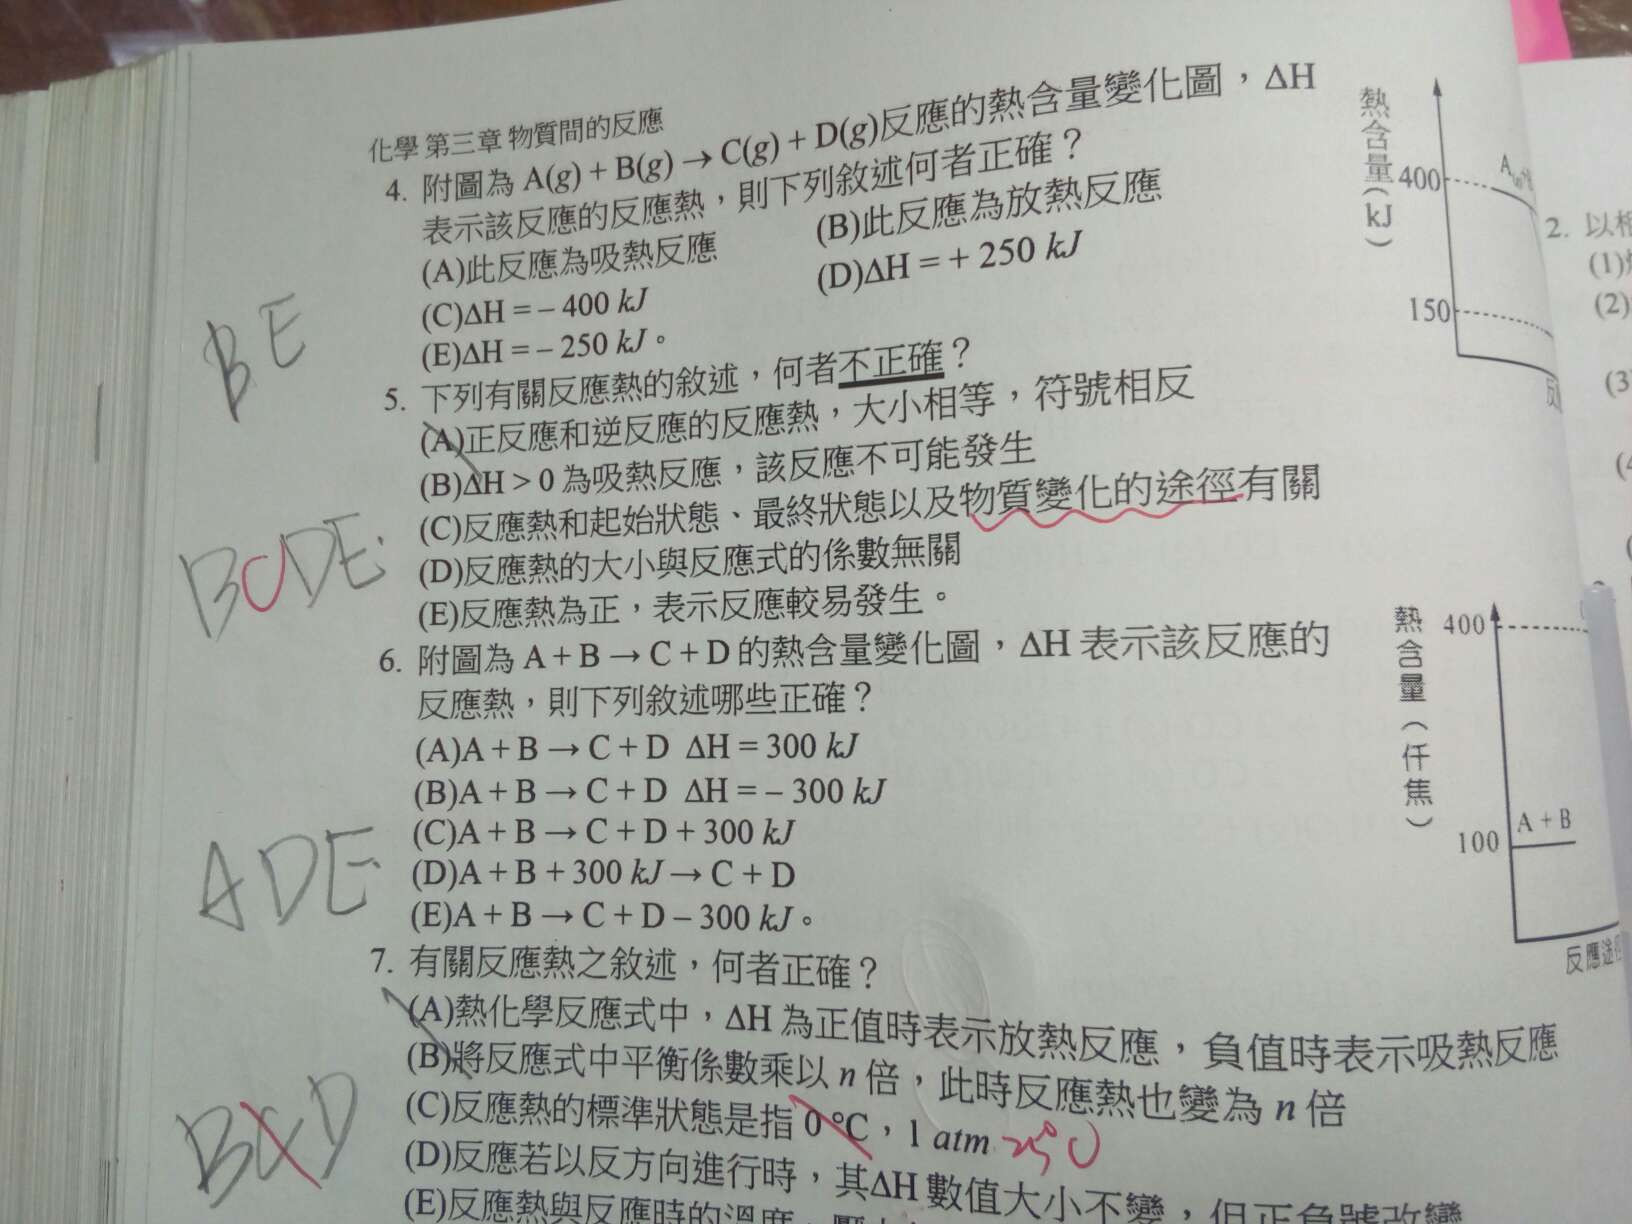 化學 第三章 物質間的反應
4. 附圖為 A(g) + B(g) → C(g) + D(g)反應的熱含量變化圖，ΔH
表示該反應的反應熱，則下列敘述何者正確？
(A)此反應為吸熱反應 (B)此反應為放熱反應
(C)ΔH = – 400 kJ (D)ΔH = + 250 kJ
(E)ΔH = – 250 kJ。
BE
5. 下列有關反應熱的敘述，何者不正確？
(A)正反應和逆反應的反應熱，大小相等，符號相反
(B)ΔH > 0 為吸熱反應，該反應不可能發生
(C)反應熱和起始狀態、最終狀態以及物質變化的途徑有關
(D)反應熱的大小與反應式的係數無關
(E)反應熱為正，表示反應較易發生。
BCDE
6. 附圖為 A + B → C + D 的熱含量變化圖，ΔH 表示該反應的
反應熱，則下列敘述哪些正確？
(A)A + B → C + D ΔH = 300 kJ
(B)A + B → C + D ΔH = – 300 kJ
(C)A + B → C + D + 300 kJ
(D)A + B + 300 kJ → C + D
(E)A + B → C + D – 300 kJ。
ADE
7. 有關反應熱之敘述，何者正確？
(A)熱化學反應式中，ΔH 為正值時表示放熱反應，負值時表示吸熱反應
(B)將反應式中平衡係數乘以 n 倍，此時反應熱也變為 n 倍
(C)反應熱的標準狀態是指 0 °C，1 atm 25°C
(D)反應若以反方向進行時，其ΔH 數值大小不變，但正負號改變
(E)反應熱與反應時的溫度、壓
BCD
熱含量(kJ)
400
150
反
熱含量（仟焦）
400
100
A + B
反應途徑
2. 以相
(1)
(2)
(3)